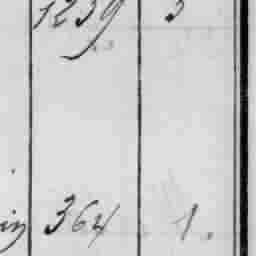 1239 3
in 364 1.